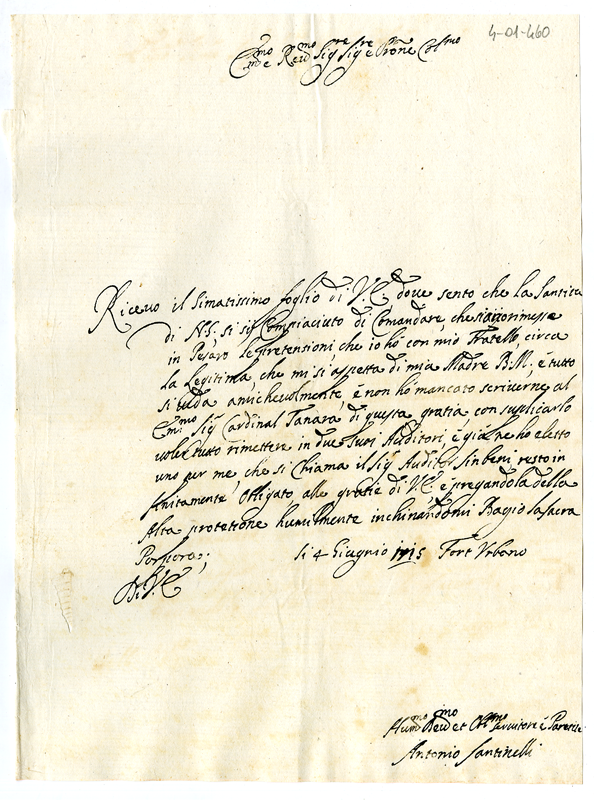 4-01-460
Em.mo e Rev.mo Sig.re Sig.re e Prone Col.mo
Ricevo il Stimatissimo foglio di V.E. dove sento che La Santità
di N.S. si sij Compiaciuto di Comandare, che siano rimesse
in Pesaro Le pretensioni, che io hò con mio Fratello, circa
La Legitima, che mi si aspetta di mia Madre B.M., è tutto
si veda amichevolmente, è non hò mancato scriverne al
Em.mo Sig. Cardinal Tanara di questa gratia, con suplicarlo
voler tutto rimettere in due suoi Auditori, è già ne hò eletto
uno per me, che si Chiama il Sig. Auditor Sinbeni, resto in
finitamente Obligato alle gratie di V.E. è pregandola della
Alta protetione humilmente inchinandomi Bagio La Sacra
Porpora,
li 4 Giugnio 1715 Fort Urbano
Di V.E.
Hum.mo Dev.mo et Obl.mo Servitore è Parente
Antonio Santinelli